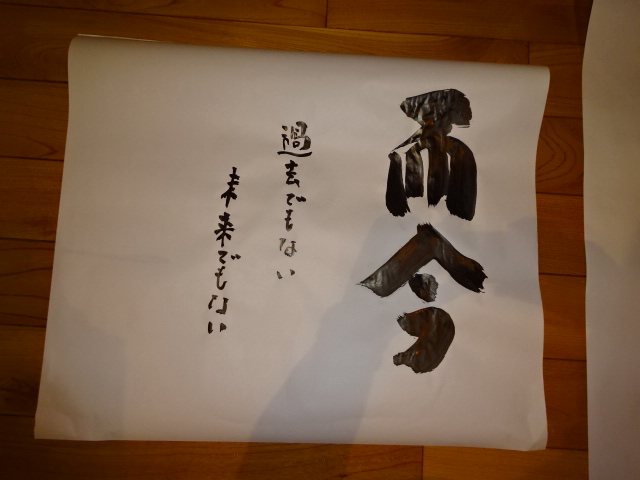 而今
過去でもない
未来でもない